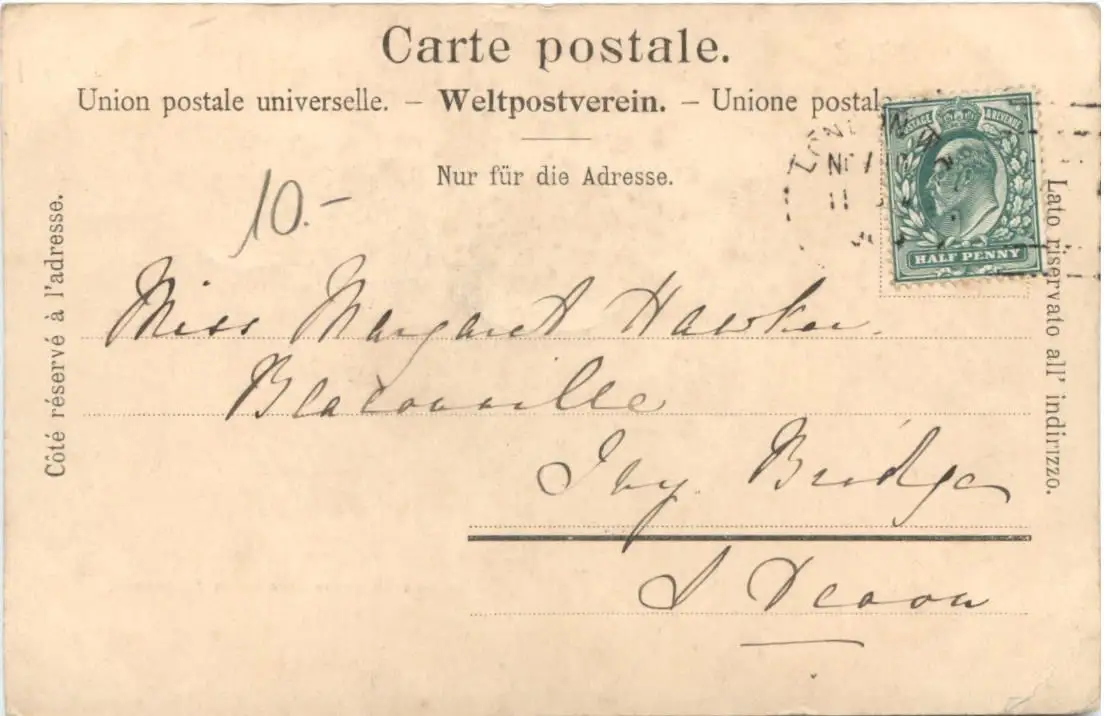 Carte postale.
Union postale universelle. – Weltpostverein. – Unione postal
Nur für die Adresse.
POSTAGE & REVENUE
HALF PENNY
LOND N.W
11
10.-
Côté réservé à l'adresse.
Lato riservato all' indirizzo.
Miss Margaret Hawker.
Ivy Bridge
S Devon